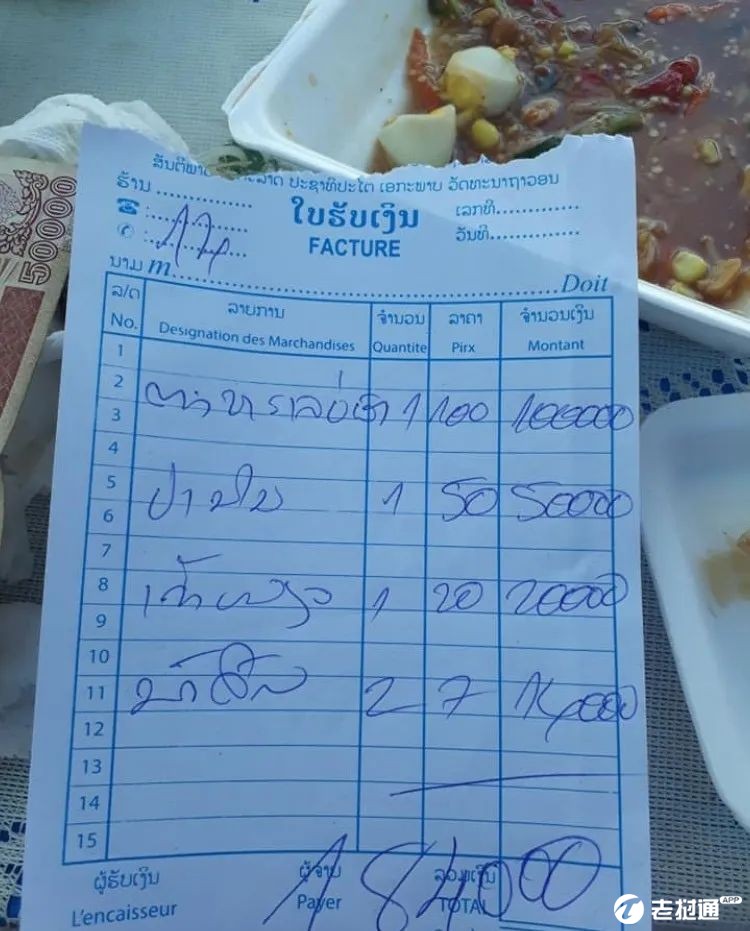 50000
ສັນຕິພາບ ປະຊາທິປະໄຕ ເອກະພາບ ວັດທະນາຖາວອນ
ຮ້ານ ............... ໃບຮັບເງິນ ເລກທີ...............
☎ :............... FACTURE ວັນທີ...............
✆ :...............
ນາມ m............................................................Doit
ລ/ດ ລາຍການ ຈຳນວນ ລາຄາ ຈຳນວນເງິນ
No. Designation des Marchandises Quantite Pirx Montant
1
2
3 1 100 100000
4
5 ປາ 1 50 50000
6
7
8 1 20 20000
9
10
11 2 7 14,000
12
13
14
15
184000
ຜູ້ຮັບເງິນ ຜູ້ຈ່າຍ ລວມເງິນ
L'encaisseur Payer TOTAL
老挝通 APP